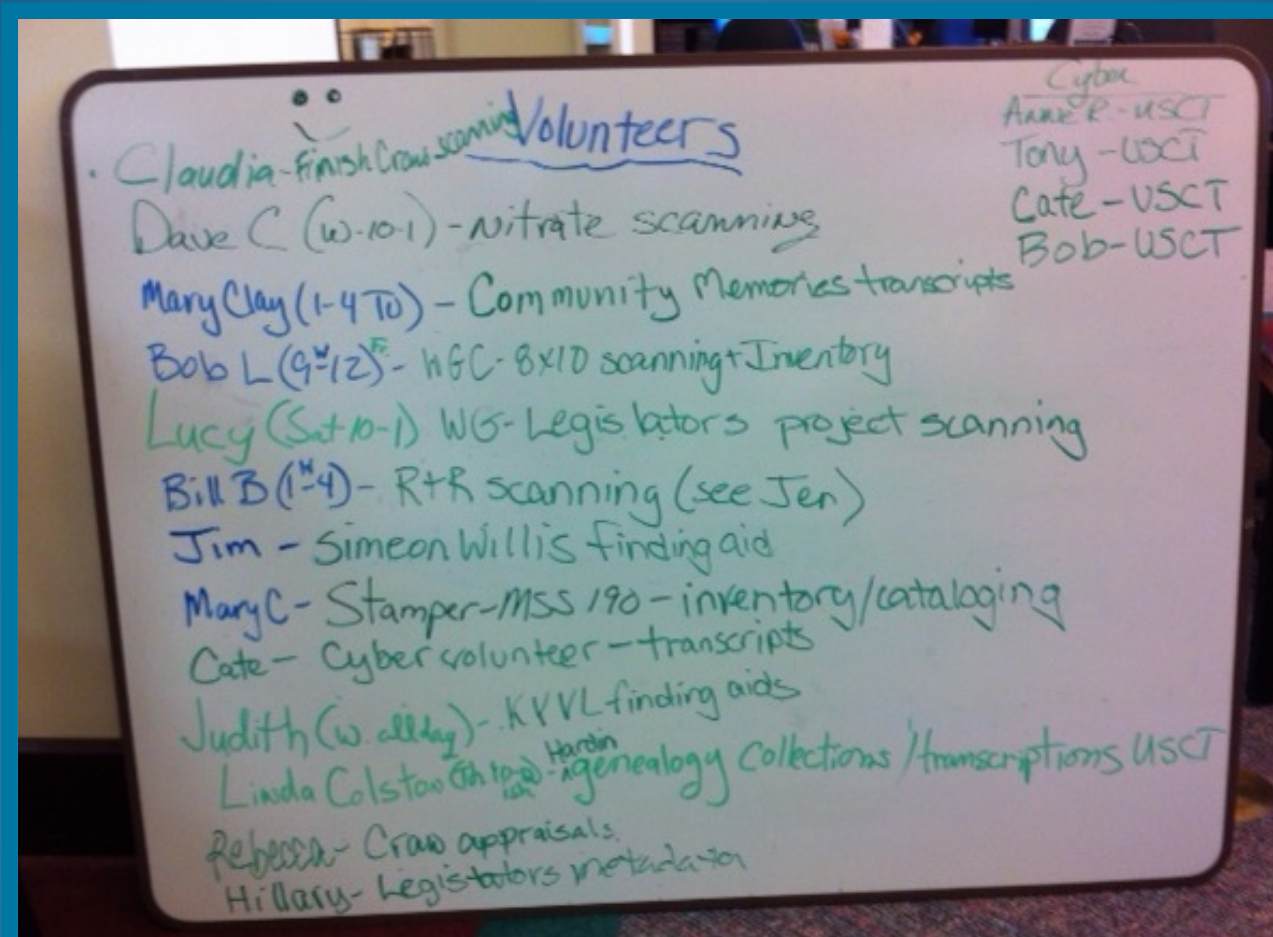 Volunteers
Claudia - Finish Craw scanning
Dave C (W-10-1) - Nitrate scanning
Mary Clay (1-4 TU) - Community Memories transcripts
Bob L (9-12) W Fr - WGC - 8x10 scanning + Inventory
Lucy (Sat 10-1) WG - Legislators project scanning
Bill B (1-4) W - R+R scanning (see Jen)
Jim - Simeon Willis finding aid
Mary C - Stamper - MSS 190 - inventory/cataloging
Cate - Cyber volunteer - transcripts
Judith (W. all day) - KYVL finding aids
Linda Colston (Th - Hardin genealogy collections / transcriptions USCT
Rebecca - Craw appraisals
Hillary - Legislators metadata
Cyber
Anne R - USCT
Tony - USCT
Cate - USCT
Bob - USCT